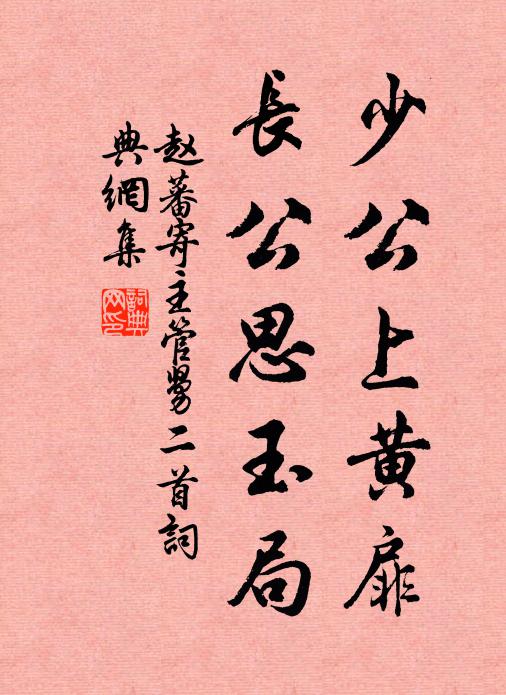 少公上黄扉
長公思玉局
赵蕃寄主管舅二首詞
典網集
詞典網印